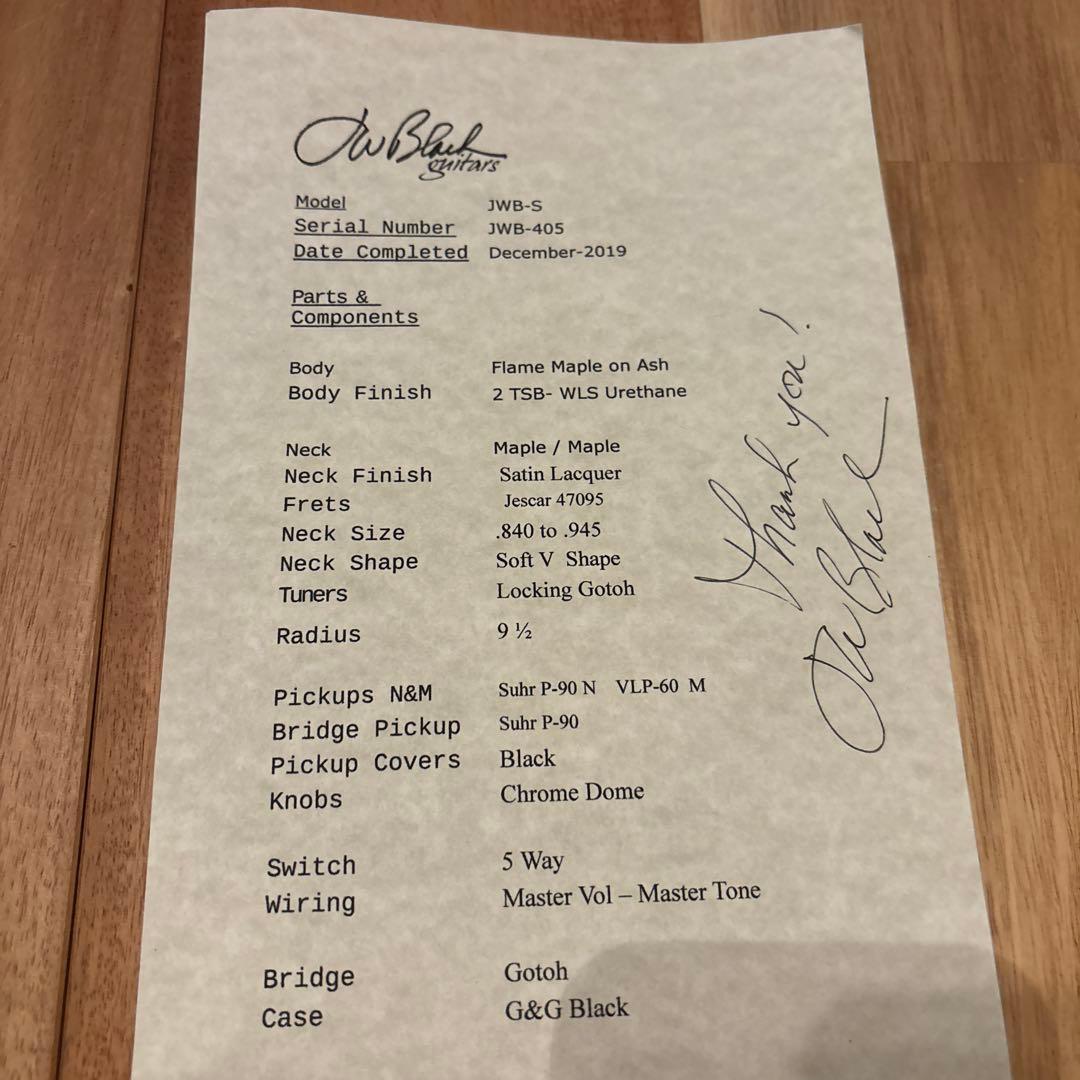 JW Black
guitars
Model JWB-S
Serial Number JWB-405
Date Completed December-2019
Parts &
Components
Body Flame Maple on Ash
Body Finish 2 TSB- WLS Urethane
Neck Maple / Maple
Neck Finish Satin Lacquer
Frets Jescar 47095
Neck Size .840 to .945
Neck Shape Soft V Shape
Tuners Locking Gotoh
Radius 9 ½
Pickups N&M Suhr P-90 N VLP-60 M
Bridge Pickup Suhr P-90
Pickup Covers Black
Knobs Chrome Dome
Switch 5 Way
Wiring Master Vol – Master Tone
Bridge Gotoh
Case G&G Black
Thank you!
JW Black